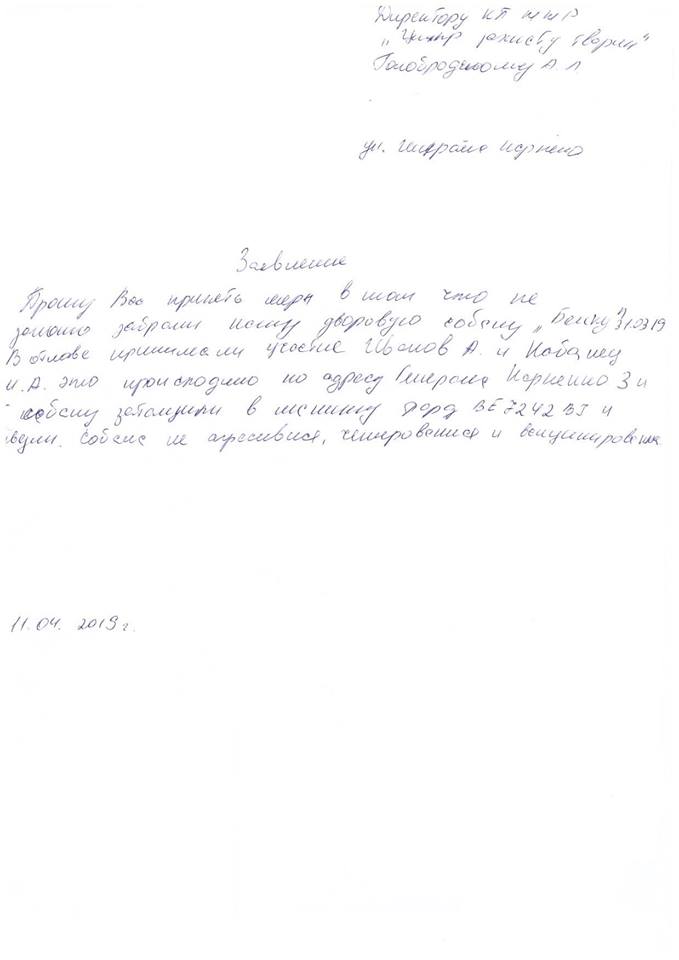 Директору КП ММР
„Центр захисту тварин"
Голобродському А. Л
ул. Генерала Карпенко
Заявление
Прошу Вас принять меры в том что не
законно забрали нашу дворовую собаку „Белку" 31.03.19
В отлове принимали участие Иванов А. и Кабанец
И. А. это происходило по адресу Генерала Карпенко 3 и
собаку затащили в машину Форд ВЕ7242ВІ и
везли. Собака не агресивная, чипированная и вакцинирована
11.04.2019 г.